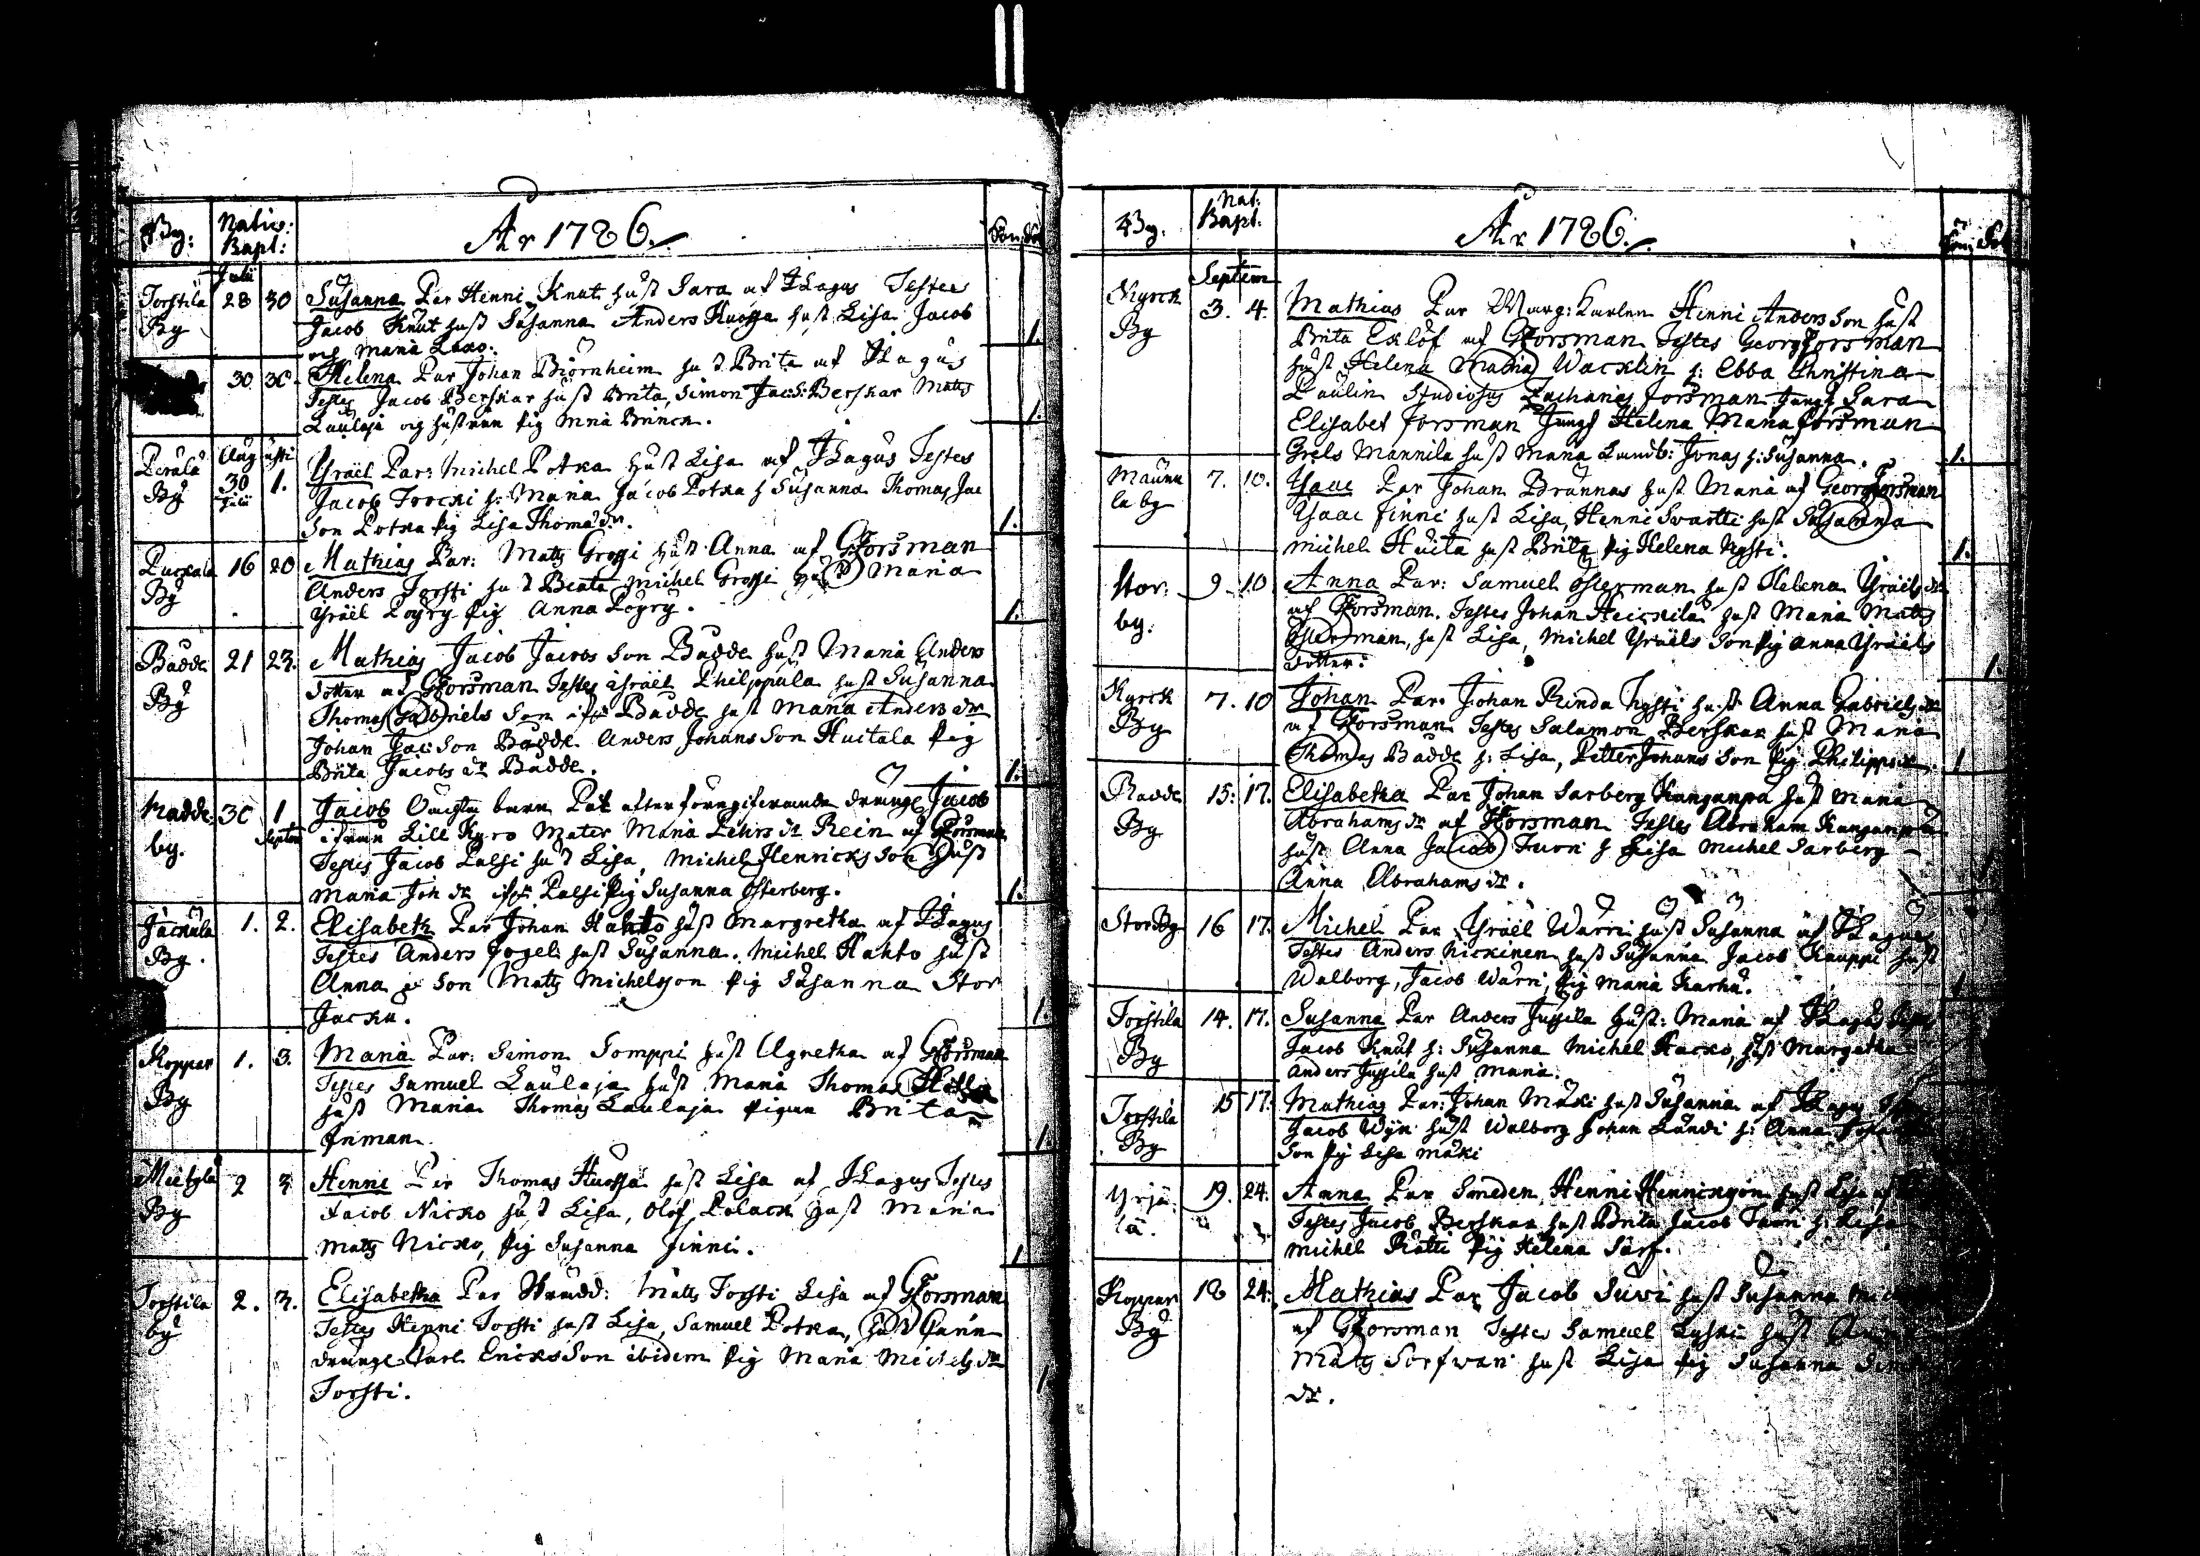 By:
Nativ:
Bapt:
År 1786.
Son
Julii
Torstila 28 30 Susanna Par Henni Knut hust Sara af Hagus Testes
By Jacob Knut hust Susanna Anders Kuossa hust Lisa Jacob
och Maria
30 30 Helena Par Johan Biörnheim hust Brita af Hagus
Testes Jacob Berskar hust Brita, Simon Jac:s: Berskar Matts
Laulaja och hustrun pig Brinck.
Augusti
Perälä 30 1. Ysräel Par: Michel Potka hust Lisa af Hagus Testes
By Julii Jacob h: Maria Jacob Potka h Susanna Thomas Jac
Son Potka pig Lisa Thomæ dr. 1.
Purkala 16 20 Mathias Par: Matts Grossi hust Anna af GForsman
By Anders Torsti hust Beata Michel Grossi hust Maria
Ysräel Pöyry pig Anna Pöyry. 1.
Badde 21 23. Mathias Jacob Jacobs Son Badde hust Maria Anders
By dotter af GForsman Testes Ysräel Philppula hust Susanna
Thomas Gabriels Son Badde hust Maria Anders dr
Johan Jac: Son Badde Anders Johans Son Huitala pig
Brita Jacobs dr Badde. 1.
Nadde 30 1 Jacob Oächta barn Pat efter föregifvande dränge Jacob
by. Septem ifrån Lill Kyro Mater Maria Pehrs dr Rein af GForsman
Testes Jacob Palsi hust Lisa, Michel Henricks Son hust
Maria Joh dr Palsi pig Susanna Österberg. 1.
Jäckälä 1. 2. Elisabeth Par Johan Hahto hust Margretha af Hagus
By. Testes Anders Fogeli hust Susanna. Michel Hahto hust
Anna Son Matts Michelsson pig Susanna Stor
Jacku. 1.
Koppar 1. 3. Maria Par: Simon Somppi hust Agnetha af GForsman
By Testes Samuel Laulaja hust Maria Thomas
hust Maria Thomas Laulaja pigan Brita
Inman. 1.
Mietylä 2 3. Henni Par Thomas Kuossa hust Lisa af Hagus Testes
By Jacob Nicko hust Lisa, Olof Polack hust Maria
Matts Nicko, pig Susanna Finni. 1
Torstila 2. 3. Elisabetha Par Matts Torsti Lisa af GForsman
by Testes Henni Torsti hust Lisa, Samuel Potka, hust Carin
dränge Carl Ericks Son ibidem pig Maria Michels dr
Torsti. 1
By.
Nat:
Bapt:
År 1786.
Septem
Kyrck 3. 4. Mathias Par Henni Andersson hust
By Brita Eklöf af GForsman Testes Georg Forsman
hust Helena Maria Wacklin h: Ebba Christina
Paulin Studiosus Zacharias Forsman Jungf Sara
Elisabet Forsman Jungf Helena Maria Forsman
Grels Mannila hust Maria Lundb: Jonas h: Susanna. 1.
Maunu 7. 10. Ysaac Par Johan Brännas hust Maria af Georg Forsman
la by Ysaac Finni hust Lisa, Henni Swartti hust Susanna
Michel Huita hust Brita pig Helena 1.
Stor 9 10 Anna Par: Samuel Österman hust Helena Ysräels dr
by. af GForsman. Testes Johan Heickilä hust Maria Matts
Österman, hust Lisa, Michel Ysräels Son pig Anna Ysräels
dotter. 1.
Kyrck 7. 10 Johan Par: Johan Rinda hust Anna Gabriels dr
By af GForsman Testes Salamon Berskar hust Maria
Thomas Badde h: Lisa, Petter Johans Son pig Philipps dr. 1
Badde 15: 17. Elisabetha Par Johan Sarberg Kanganpä hust Maria
By Abrahams dr af GForsman Testes Abraham Kanganpä
hust Anna Jacob Turri h Lisa Michel Sarberg
Anna Abrahams dr.
Stor By 16 17. Michel Par Ysräel Warri hust Susanna af Hagus
Testes Anders Nickinen hust Susanna Jacob Kauppi hust
Walborg, Jacob Warri, pig Maria Karhu. 1
Torstila 14. 17. Susanna Par Anders Jussila hust: Maria af Hagus Testes
By Jacob Knut h: Susanna Michel Hacko, hust Margetha
Anders Jussila hust Maria.
Torstila 15 17. Mathias Par: Johan Mäki hust Susanna af Hagus
By Jacob Wyn hust Walborg Johan Landi h: Anna
Son pig Lisa Mäki
Yrjä 19. 24. Anna Par Smeden Henni Henricksson hust Lisa af
lä. Testes Jacob Berskar hust Brita Jacob Turri h: Lisa
Michel Rätti pig Helena Särf.
Koppar 18 24. Mathias Par Jacob Suvi hust Susanna
By af GForsman Testes Samuel Lyski hust
Matts Sorfvari hust Lisa pig Susanna
dr.